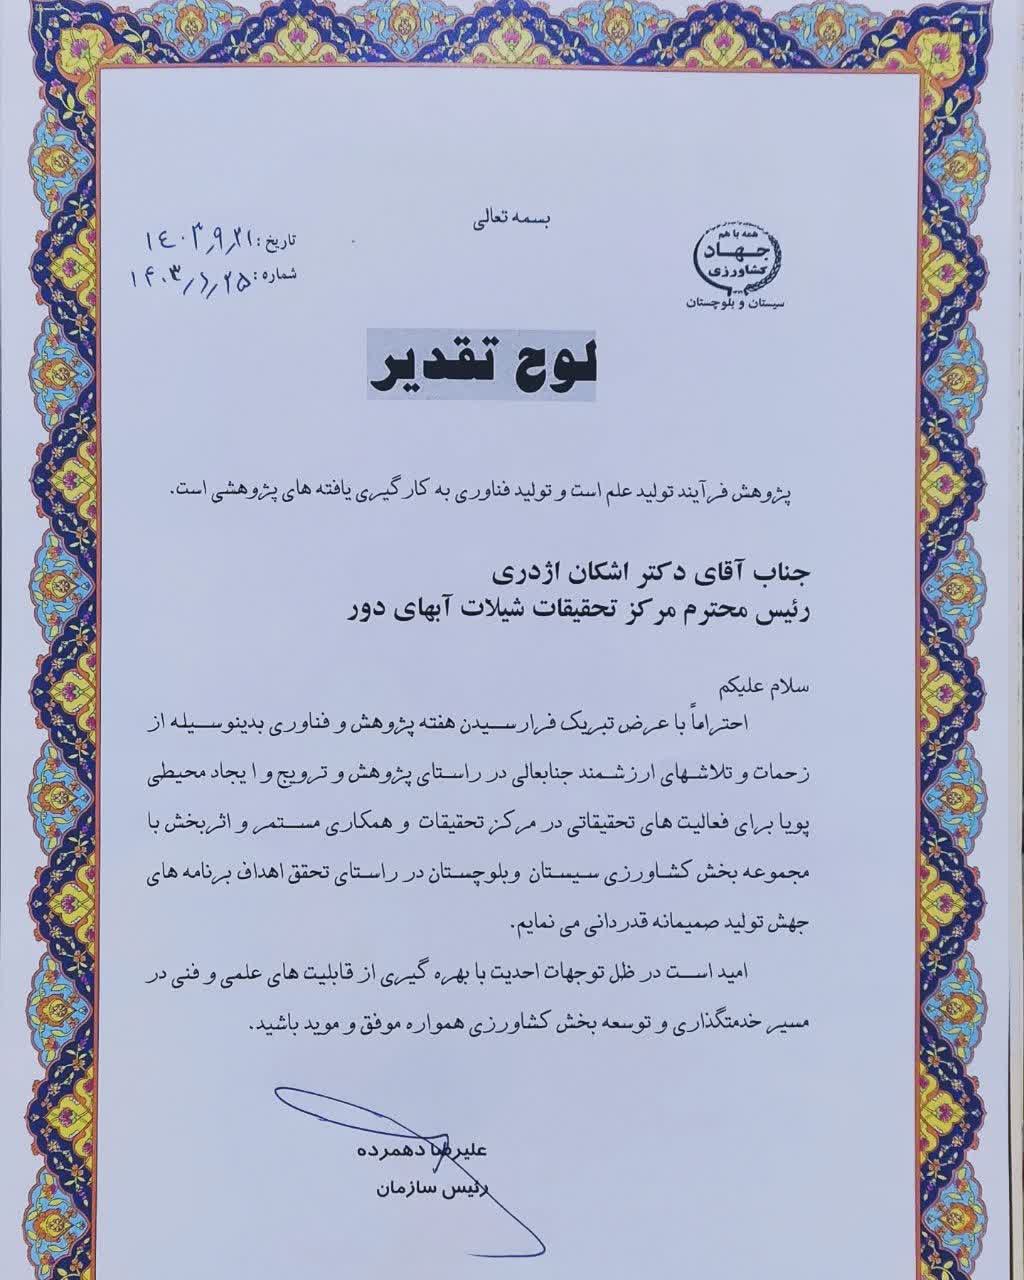 بسمه تعالی
همه با هم
جهاد
کشاورزی
سیستان و بلوچستان
تاریخ: ۱۴۰۳٫۹٫۲۱
شماره:
لوح تقدیر
پژوهش فرآیند تولید علم است و تولید فناوری به کارگیری یافته های پژوهشی است.
جناب آقای دکتر اشکان اژدری
رئیس محترم مرکز تحقیقات شیلات آبهای دور
سلام علیکم
احتراماً با عرض تبریک فرارسیدن هفته پژوهش و فناوری بدینوسیله از
زحمات و تلاشهای ارزشمند جنابعالی در راستای پژوهش و ترویج و ایجاد محیطی
پویا برای فعالیت های تحقیقاتی در مرکز تحقیقات و همکاری مستمر و اثربخش با
مجموعه بخش کشاورزی سیستان وبلوچستان در راستای تحقق اهداف برنامه های
جهش تولید صمیمانه قدردانی می نمایم.
امید است در ظل توجهات احدیت با بهره گیری از قابلیت های علمی و فنی در
مسیر خدمتگذاری و توسعه بخش کشاورزی همواره موفق و موید باشید.
علیرضا دهمرده
رئیس سازمان